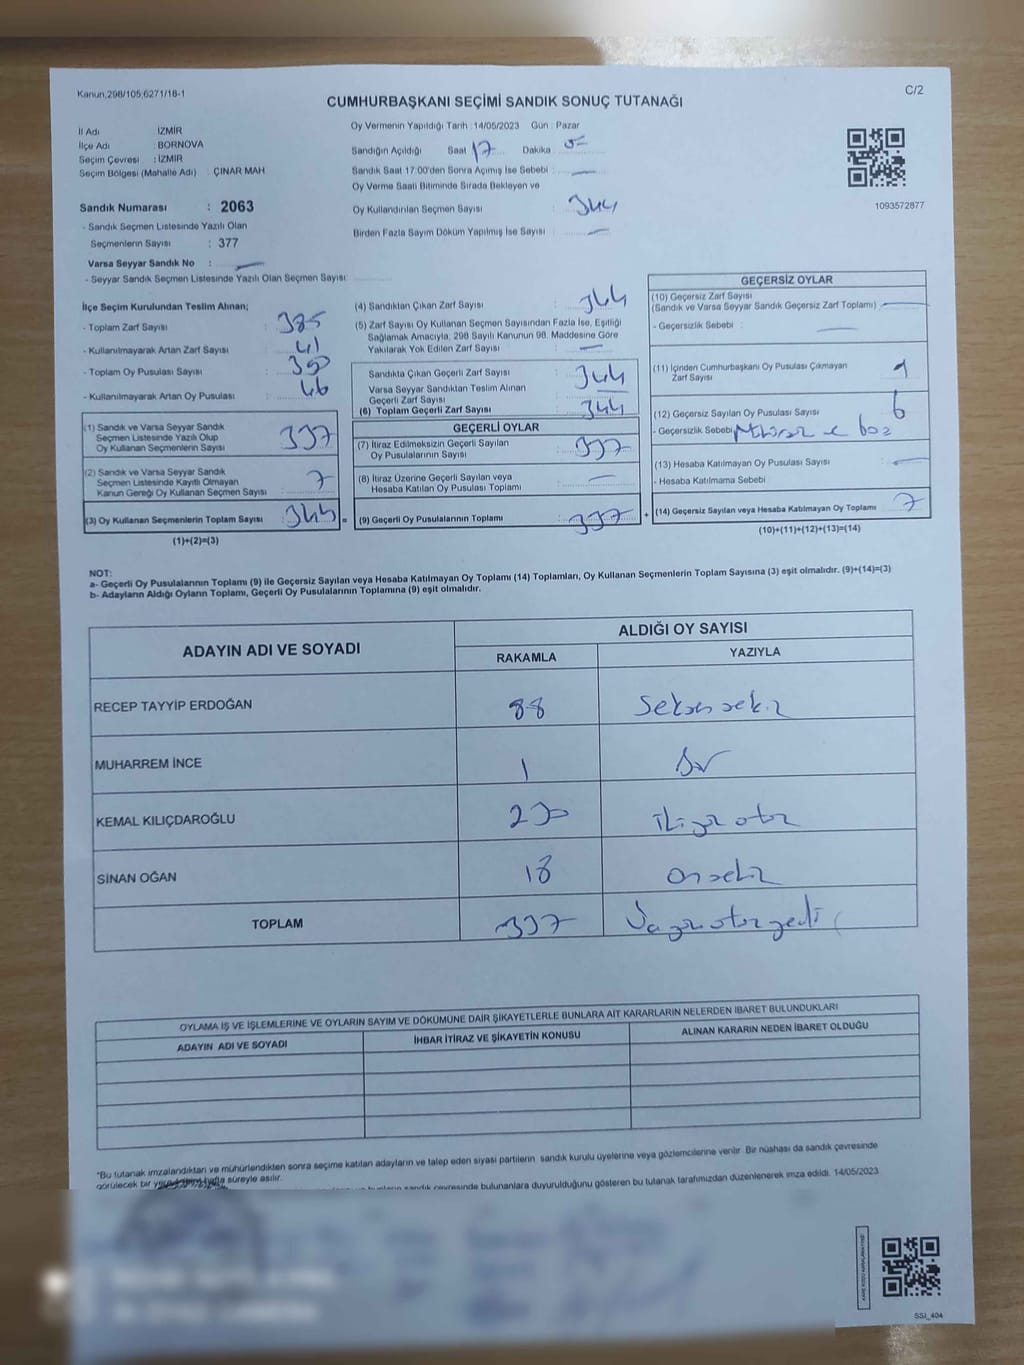 Kanun,298/105,6271/18-1
C/2
CUMHURBAŞKANI SEÇİMİ SANDIK SONUÇ TUTANAĞI
İl Adı : İZMİR
İlçe Adı : BORNOVA
Seçim Çevresi : İZMİR
Seçim Bölgesi (Mahalle Adı) : ÇINAR MAH
Sandık Numarası : 2063
- Sandık Seçmen Listesinde Yazılı Olan
Seçmenlerin Sayısı : 377
Varsa Seyyar Sandık No :
- Seyyar Sandık Seçmen Listesinde Yazılı Olan Seçmen Sayısı:
Oy Vermenin Yapıldığı Tarih :14/05/2023 Gün : Pazar
Sandığın Açıldığı Saat 17 Dakika :
Sandık Saat 17:00'den Sonra Açımış İse Sebebi :
Oy Verme Saati Bitiminde Sırada Bekleyen ve
Oy Kullandırılan Seçmen Sayısı : 344
Birden Fazla Sayım Döküm Yapılmış İse Sayısı :
1093572877
İlçe Seçim Kurulundan Teslim Alınan;
- Toplam Zarf Sayısı : 385
- Kullanılmayarak Artan Zarf Sayısı : 41
- Toplam Oy Pusulası Sayısı :
- Kullanılmayarak Artan Oy Pusulası : 46
(1) Sandık ve Varsa Seyyar Sandık
Seçmen Listesinde Yazılı Olup
Oy Kullanan Seçmenlerin Sayısı : 337
(2) Sandık ve Varsa Seyyar Sandık
Seçmen Listesinde Kayıtlı Olmayan
Kanun Gereği Oy Kullanan Seçmen Sayısı : 7
(3) Oy Kullanan Seçmenlerin Toplam Sayısı : 344 =
(1)+(2)=(3)
(4) Sandıktan Çıkan Zarf Sayısı : 344
(5) Zarf Sayısı Oy Kullanan Seçmen Sayısından Fazla İse, Eşitliği
Sağlamak Amacıyla, 298 Sayılı Kanunun 98. Maddesine Göre
Yakılarak Yok Edilen Zarf Sayısı :
Sandıkta Çıkan Geçerli Zarf Sayısı : 344
Varsa Seyyar Sandıktan Teslim Alınan
Geçerli Zarf Sayısı :
(6) Toplam Geçerli Zarf Sayısı : 344
GEÇERLİ OYLAR
(7) İtiraz Edilmeksizin Geçerli Sayılan
Oy Pusulalarının Sayısı : 337
(8) İtiraz Üzerine Geçerli Sayılan veya
Hesaba Katılan Oy Pusulası Toplamı :
(9) Geçerli Oy Pusulalarının Toplamı : 337 +
GEÇERSİZ OYLAR
(10) Geçersiz Zarf Sayısı
(Sandık ve Varsa Seyyar Sandık Geçersiz Zarf Toplamı) :
- Geçersizlik Sebebi :
(11) İçinden Cumhurbaşkanı Oy Pusulası Çıkmayan
Zarf Sayısı : 1
(12) Geçersiz Sayılan Oy Pusulası Sayısı : 6
- Geçersizlik Sebebi:
(13) Hesaba Katılmayan Oy Pusulası Sayısı :
- Hesaba Katılmama Sebebi
(14) Geçersiz Sayılan veya Hesaba Katılmayan Oy Toplamı : 7
(10)+(11)+(12)+(13)=(14)
NOT:
a- Geçerli Oy Pusulalarının Toplamı (9) ile Geçersiz Sayılan veya Hesaba Katılmayan Oy Toplamı (14) Toplamları, Oy Kullanan Seçmenlerin Toplam Sayısına (3) eşit olmalıdır. (9)+(14)=(3)
b- Adayların Aldığı Oyların Toplamı, Geçerli Oy Pusulalarının Toplamına (9) eşit olmalıdır.
ADAYIN ADI VE SOYADI
ALDIĞI OY SAYISI
RAKAMLA YAZIYLA
RECEP TAYYİP ERDOĞAN 88 Seksen sekiz
MUHARREM İNCE 1 Bir
KEMAL KILIÇDAROĞLU 230 ikiyüz otuz
SİNAN OĞAN 18 On sekiz
TOPLAM 337 Üç yüz otuz yedi
OYLAMA İŞ VE İŞLEMLERİNE VE OYLARIN SAYIM VE DÖKÜMÜNE DAİR ŞİKAYETLERLE BUNLARA AİT KARARLARIN NELERDEN İBARET BULUNDUKLARI
ADAYIN ADI VE SOYADI İHBAR İTİRAZ VE ŞİKAYETİN KONUSU ALINAN KARARIN NEDEN İBARET OLDUĞU
*Bu tutanak imzalandıktan ve mühürlendikten sonra seçime katılan adayların ve talep eden siyasi partilerin sandık kurulu üyelerine veya gözlemcilerine verilir. Bir nüshası da sandık çevresinde
görülecek bir yere hafta süreyle asılır.
sandık çevresinde bulunanlara duyurulduğunu gösteren bu tutanak tarafımızdan düzenlenerek imza edildi. 14/05/2023
SSI_404